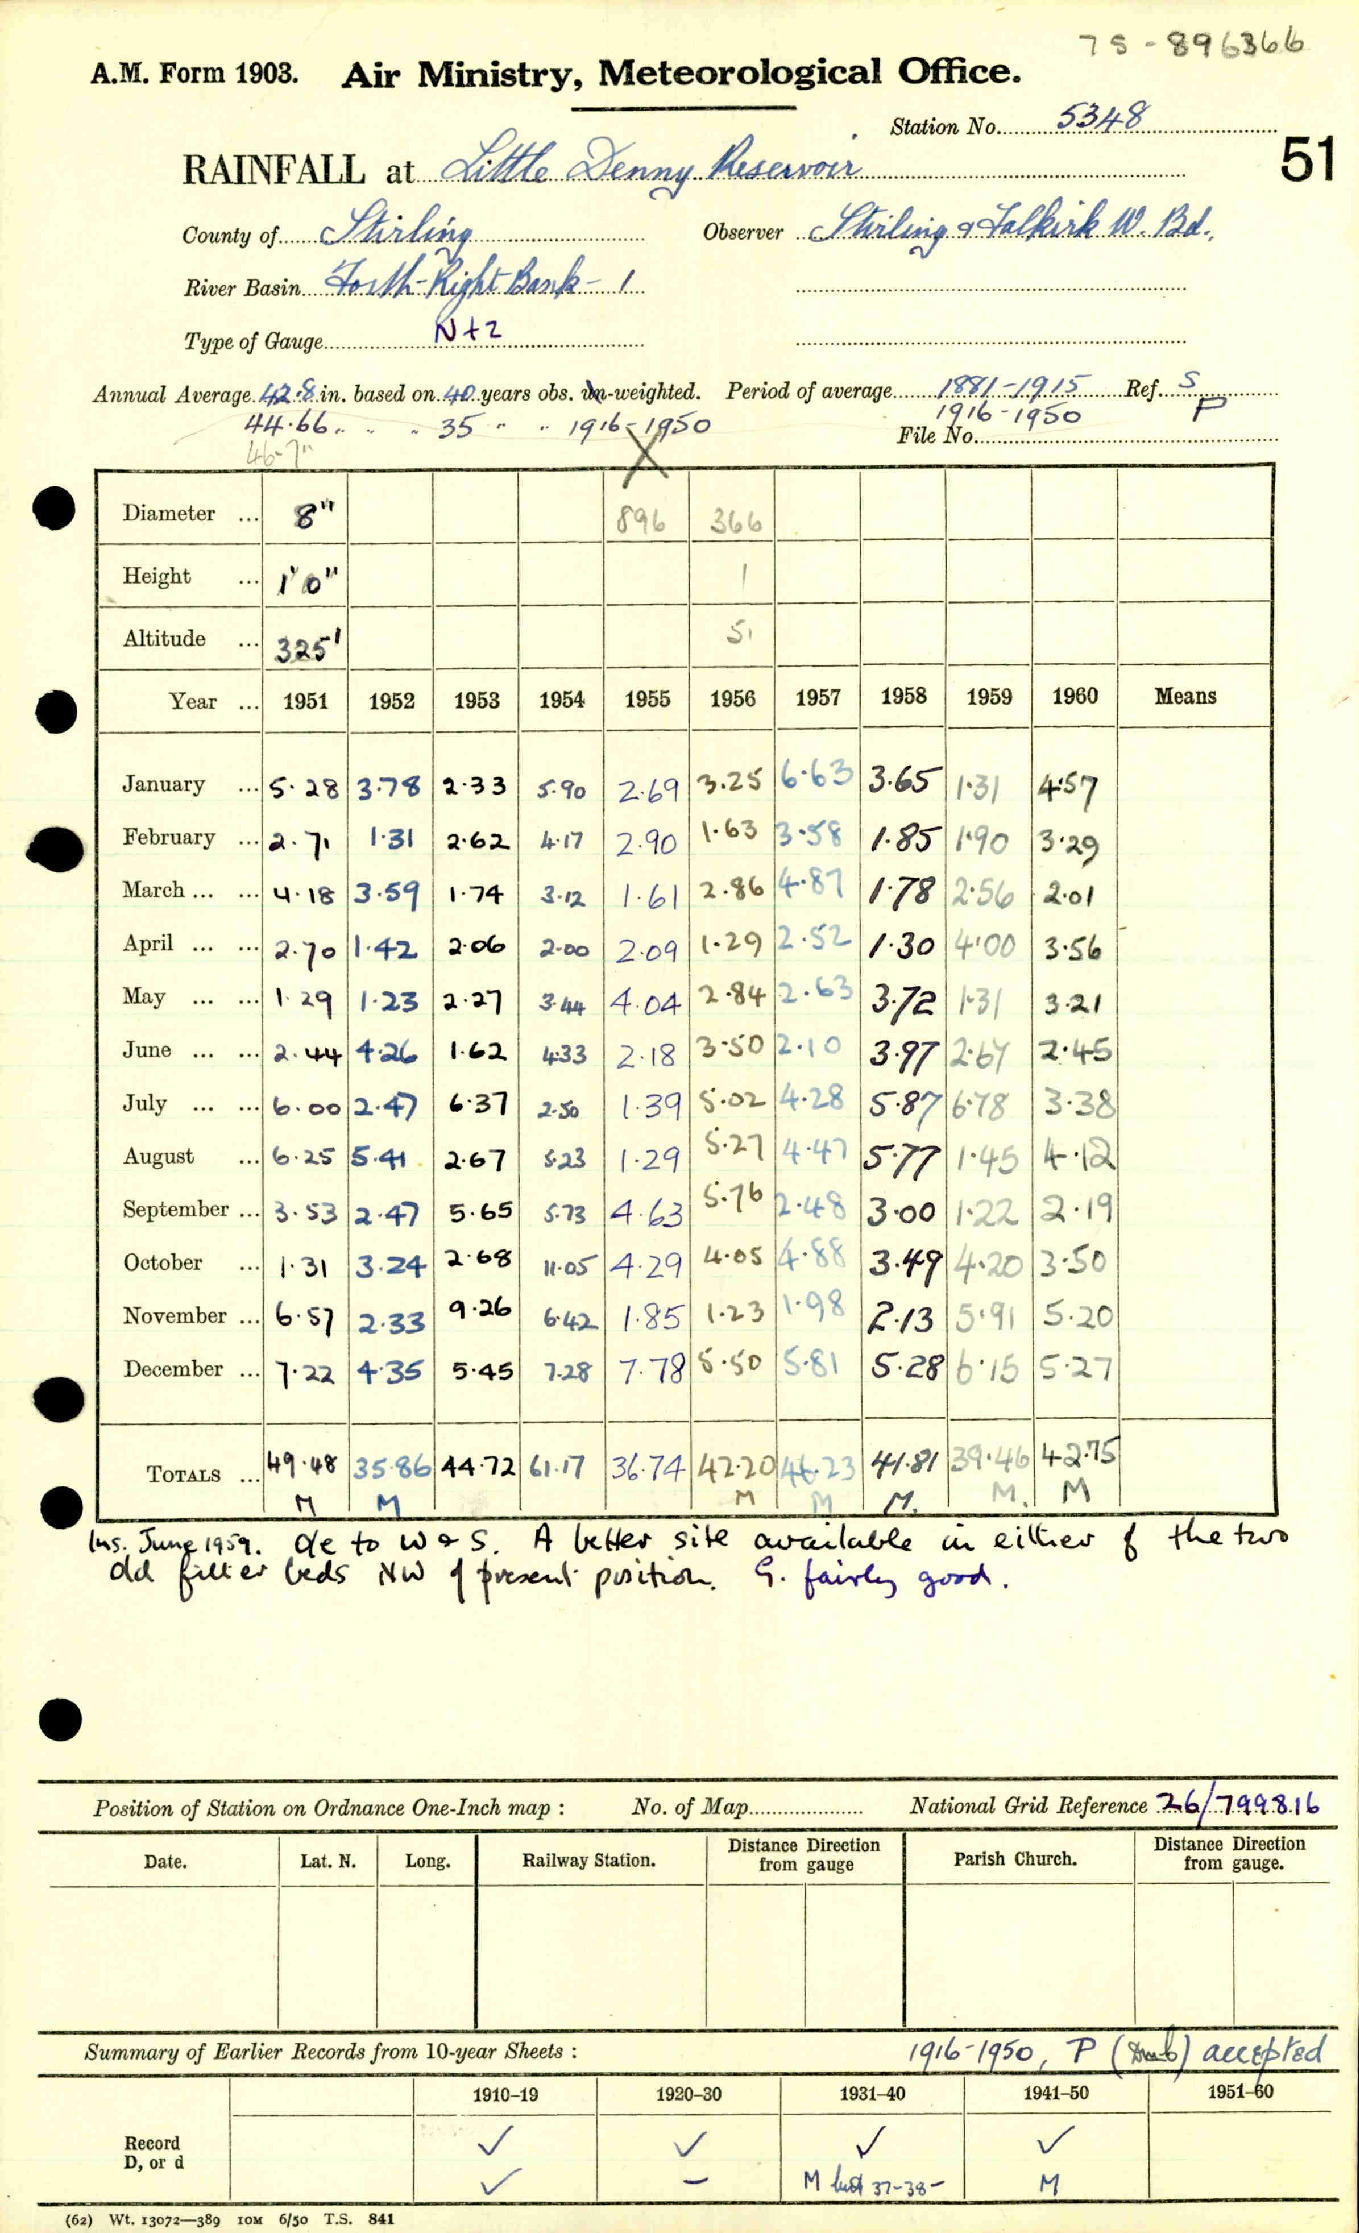 7S-896366
A.M. Form 1903. Air Ministry, Meteorological Office.
Station No. 5348
51
RAINFALL at Little Denny Reservoir
County of Stirling Observer Stirling & Falkirk W. Bd.,
River Basin Forth-Right Bank-1
Type of Gauge N+2
Annual Average 42.8 in. based on 40 years obs. un-weighted. Period of average 1881-1915 Ref. S
44.66 " " " 35 " " 1916-1950 1916-1950 P
File No.
46.7"
Diameter ... 8" 896 366
Height ... 1'0" 1
Altitude ... 325' 51
Year ... 1951 1952 1953 1954 1955 1956 1957 1958 1959 1960 Means
January ... 5.28 3.78 2.33 5.90 2.69 3.25 6.63 3.65 1.31 4.57
February ... 2.71 1.31 2.62 4.17 2.90 1.63 3.58 1.85 1.90 3.29
March ... ... 4.18 3.59 1.74 3.12 1.61 2.86 4.87 1.78 2.56 2.01
April ... ... 2.70 1.42 2.06 2.00 2.09 1.29 2.52 1.30 4.00 3.56
May ... ... 1.29 1.23 2.27 3.44 4.04 2.84 2.63 3.72 1.31 3.21
June ... ... 2.44 4.26 1.62 4.33 2.18 3.50 2.10 3.97 2.67 2.45
July ... ... 6.00 2.47 6.37 2.50 1.39 5.02 4.28 5.87 6.78 3.38
August ... 6.25 5.41 2.67 5.23 1.29 5.27 4.47 5.77 1.45 4.12
September ... 3.53 2.47 5.65 5.73 4.63 5.76 2.48 3.00 1.22 2.19
October ... 1.31 3.24 2.68 11.05 4.29 4.05 4.88 3.49 4.20 3.50
November ... 6.57 2.33 9.26 6.42 1.85 1.23 1.98 2.13 5.91 5.20
December ... 7.22 4.35 5.45 7.28 7.78 5.50 5.81 5.28 6.15 5.27
TOTALS ... 49.48 35.86 44.72 61.17 36.74 42.20 46.23 41.81 39.46 42.75
M M M M M. M. M
Ins. June 1959. o/e to W & S. A better site available in either of the two
old filter beds NW of present position. G. fairly good.
Position of Station on Ordnance One-Inch map : No. of Map National Grid Reference 26/799816
Date. Lat. N. Long. Railway Station. Distance Direction from gauge Parish Church. Distance Direction from gauge.
Summary of Earlier Records from 10-year Sheets : 1916-1950, P () accepted
1910-19 1920-30 1931-40 1941-50 1951-60
Record ✓ ✓ ✓ ✓
D, or d ✓ - M but 37-38- M
(62) Wt. 13072—389 10M 6/50 T.S. 841